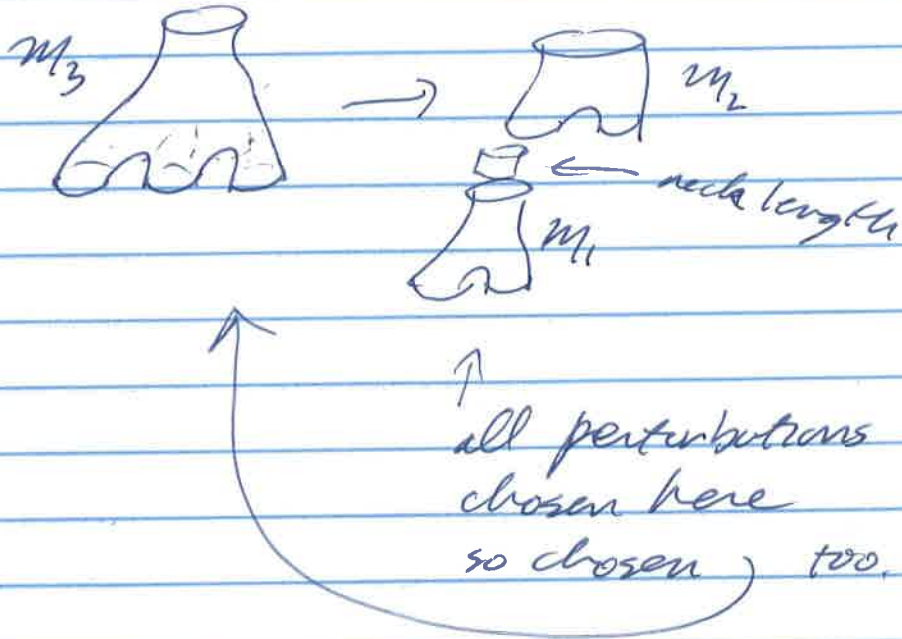 m₃
m₂
neck length
m₁
all perturbations
chosen here
so chosen too.